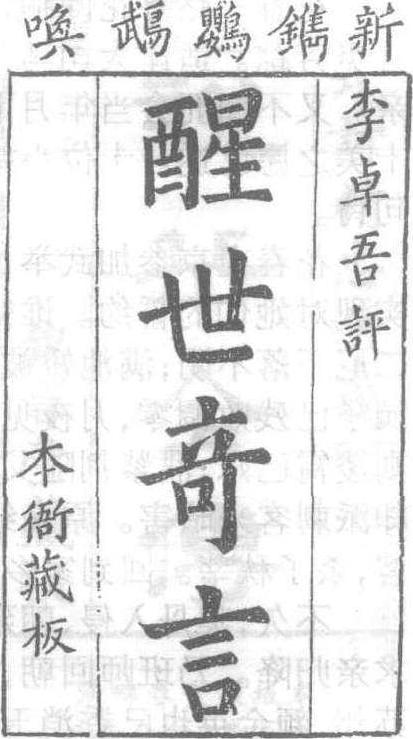 新鐫鸚鵡喚
李卓吾評
醒世奇言
本衙藏板